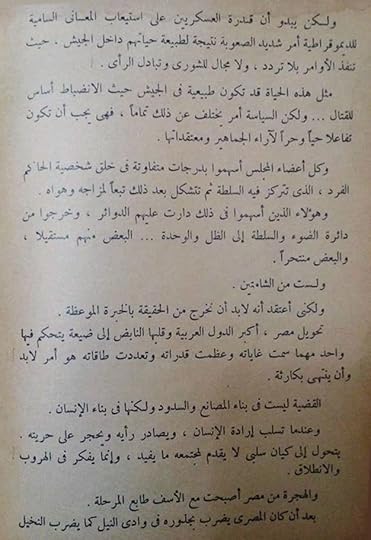 ولكن يبدو أن قدرة العسكريين على استيعاب المعانى السامية
للديموقراطية أمر شديد الصعوبة نتيجة لطبيعة حياتهم داخل الجيش . حيث
تنفذ الأوامر بلا تردد ، ولا مجال للشورى وتبادل الرأى .
مثل هذه الحياة قد تكون طبيعية فى الجيش حيث الانضباط أساس
للقتال ... ولكن السياسة أمر يختلف عن ذلك تماماً ، فهى يجب أن تكون
تفاعلا حياً وحراً لآراء الجماهير ومعتقداتها .
وكل أعضاء المجلس أسهموا بدرجات متفاوتة فى خلق شخصية الحاكم
الفرد ، الذى تتركز فيه السلطة ثم تتشكل بعد ذلك تبعاً لمزاجه وهواه .
وهؤلاء الذين أسهموا فى ذلك دارت عليهم الدوائر ، وخرجوا من
دائرة الضوء والسلطة إلى الظل والوحدة ... البعض منهم مستقيلا ،
والبعض منتحراً .
ولست من الشامتين .
ولكنى أعتقد أنه لابد أن نخرج من الحقيقة بالخبرة الموعظة .
تحويل مصر ، أكبر الدول العربية وقلبها النابض إلى ضيعة يتحكم فيها
واحد مهما سمت غاياته وعظمت قدراته وتعددت طاقاته هو أمر لابد
وأن ينتهى بكارثة .
القضية ليست فى بناء المصانع والسدود ولكنها فى بناء الإنسان .
وعندما تسلب إرادة الإنسان ، ويصادر رأيه ويحجر على حريته .
يتحول إلى كيان سلبى لا يقدم لمجتمعه ما يفيد ، وإنما يفكر فى الهروب
والانطلاق .
والهجرة من مصر أصبحت مع الأسف طابع المرحلة .
بعد أن كان المصرى يضرب بجذوره فى وادى النيل كما يضرب النخيل